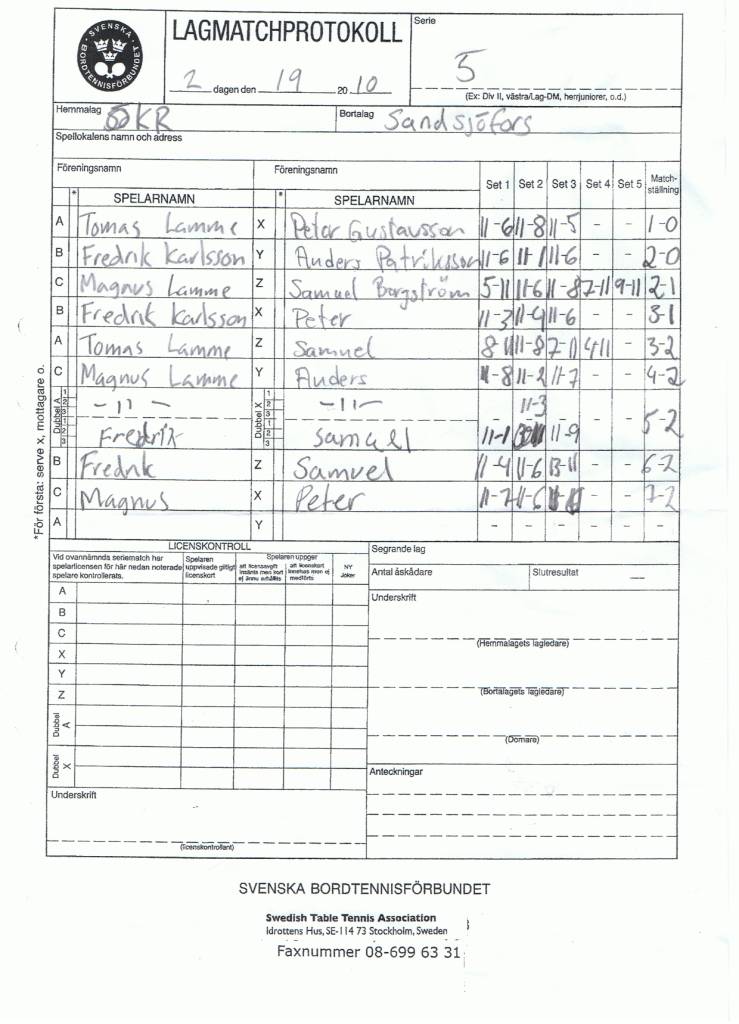 SVENSKA BORDTENNISFÖRBUNDET
LAGMATCHPROTOKOLL
Serie
2 dagen den 19 2010
5
(Ex: Div II, västra/Lag-DM, herrjuniorer, o.d.)
Hemmalag KR Bortalag Sandsjöfors
Spellokalens namn och adress
Föreningsnamn Föreningsnamn
Set 1 Set 2 Set 3 Set 4 Set 5 Match-ställning
* SPELARNAMN * SPELARNAMN
A Tomas Lamme X Peter Gustavsson 11-6 11-8 11-5 - - 1-0
B Fredrik Karlsson Y Anders Patriksson 11-6 11-1 11-6 - - 2-0
C Magnus Lamme Z Samuel Borgström 5-11 11-6 11-8 7-11 9-11 2-1
B Fredrik Karlsson X Peter 11-3 11-4 11-6 - - 3-1
A Tomas Lamme Z Samuel 8-11 11-8 7-11 4-11 - 3-2
C Magnus Lamme Y Anders 11-8 11-2 11-7 - - 4-2
Dubbel A 1 2 3 -11- Dubbel X 1 2 3 -11- 11-3 - - 5-2
1 2 3 Fredrik 1 2 3 Samuel 11-1 11-9
B Fredrik Z Samuel 11-4 11-6 13-11 - - 6-2
C Magnus X Peter 11-7 11-6 - - 7-2
A Y - - - - -
*För första: serve x, mottagare o.
LICENSKONTROLL
Vid ovannämnda seriematch har spelarlicensen för här nedan noterade spelare kontrollerats.
Spelaren uppvisade giltigt licenskort
Spelaren uppger
att licensavgift insänts men kort ej ännu erhållits
att licenskort innehas men ej medförts
NY Joker
A
B
C
X
Y
Z
Dubbel A
Dubbel X
Underskrift
(licenskontrollant)
Segrande lag
Antal åskådare Slutresultat —
Underskrift
(Hemmalagets lagledare)
(Bortalagets lagledare)
(Domare)
Anteckningar
SVENSKA BORDTENNISFÖRBUNDET
Swedish Table Tennis Association
Idrottens Hus, SE-114 73 Stockholm, Sweden
Faxnummer 08-699 63 31